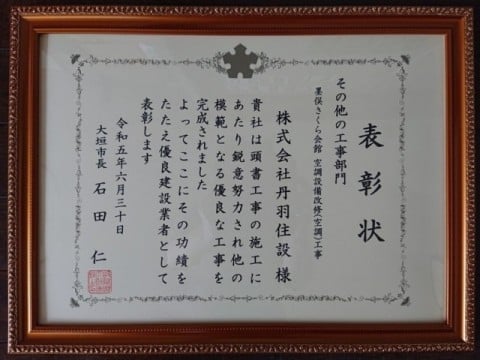 表彰状
その他の工事部門
墨俣さくら会館 空調設備改修(空調)工事
株式会社丹羽住設 様
貴社は頭書工事の施工に
あたり鋭意努力され他の
模範となる優良な工事を
完成されました
よってここにその功績を
たたえ優良建設業者として
表彰します
令和五年六月三十日
大垣市長 石田 仁